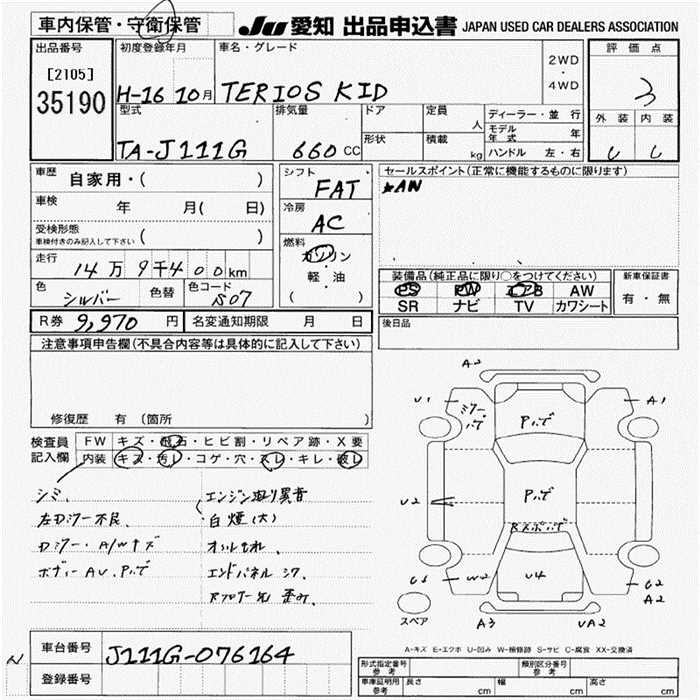 車内保管・守衛保管
JU 愛知 出品申込書 JAPAN USED CAR DEALERS ASSOCIATION
出品番号
[2105]
35190
初度登録年月
H-16 10月
車名・グレード
TERIOS KID
2WD
・
4WD
評価点
3
外装 内装
型式
TA-J111G
排気量
660 CC
ドア
形状
定員
人
積載
kg
ディーラー・並行
モデル年式 年
ハンドル 左・右
車歴 自家用・( )
車検 年 月( 日)
受検形態
車検付きのみ記入して下さい ( )
走行 14万9千400km
色 シルバー 色替 色コード S07
シフト
FAT
冷房
AC
燃料
ガソリン
・
軽・油
( )
セールスポイント(正常に機能するものに限ります)
★AN
装備品(純正品に限り○をつけてください)
PS PW エアB AW
SR ナビ TV カワシート
新車保証書
有・無
R券 9,970 円 名変通知期限 月 日
後日品
注意事項申告欄(不具合内容等は具体的に記入して下さい)
修復歴 有 (箇所
検査員記入欄
FW キズ・飛石・ヒビ割・リペア跡・X要
内装 キズ・汚レ・コゲ・穴・スレ・キレ・破レ
シミ
左Dミラー不良
Dミラー・A/Wキズ
ボディーAU、Pハゲ
エンジン廻り異音
白煙(大)
オイルもれ
エンドパネル
A2
U1
ミラーハゲ
Pハゲ
A1
U2
Pハゲ
W2
U4
C2
A2
スペア
A3
UA2
A-キズ E-エクボ U-凹み W-補修跡 S-サビ C-腐食 XX-交換済
車台番号 J111G-076164
登録番号
型式指定番号 参考
類別区分番号 参考
車庫証明用 参考 長さ cm 幅 cm 高さ cm